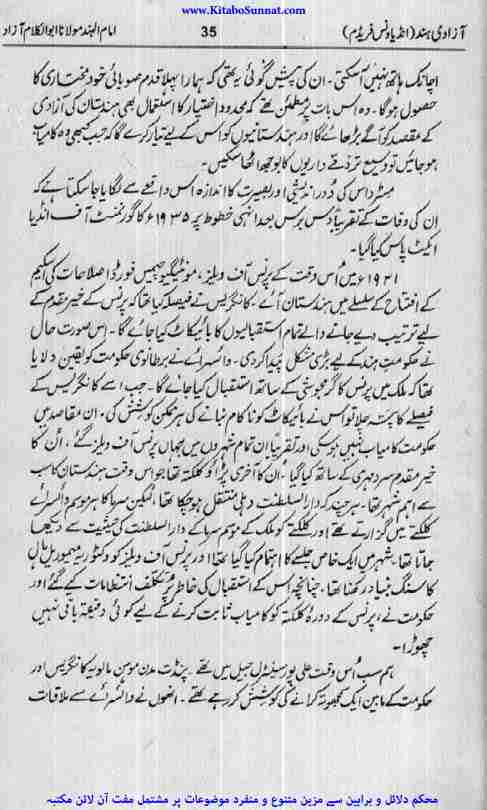 www.KitaboSunnat.com
آزادی ہند (انڈیا ونس فریڈم) 35 امام الہند مولانا ابوالکلام آزاد
اچانک ہاتھ نہیں آسکتی۔ ان کی پیشیں گوئی یہ تھی کہ ہمارا پہلا قدم صوبائی خود مختاری کا
حصول ہوگا۔ وہ اس بات پر مطمئن تھے کہ محدود اختیار کا استعمال بھی ہندستان کی آزادی
کے مقصد کو آگے بڑھائے گا اور ہندستانیوں کو اس کے لیے تیار کرے گا کہ جب کبھی وہ کامیاب
ہو جائیں تو وسیع تر ذمّے داریوں کا بوجھ اٹھا سکیں۔
مسٹر داس کی دُور اندیشی اور بصیرت کا اندازہ اس واقعے سے لگایا جا سکتا ہے کہ
ان کی وفات کے تقریباً دس برس بعد انہی خطوط پر ۱۹۳۵ء کا گورنمنٹ آف انڈیا
ایکٹ پاس کیا گیا۔
۱۹۲۱ء میں اُس وقت کے پرنس آف ویلز، مونٹیگیو چیمس فورڈ اصلاحات کی اسکیم
کے افتتاح کے سلسلے میں ہندستان آئے۔ کانگریس نے فیصلہ کیا تھا کہ پرنس کے خیر مقدم کے
لیے ترتیب دیے جانے والے تمام استقبالیوں کا بائیکاٹ کیا جائے گا۔ اس صورت حال
نے حکومتِ ہند کے لیے بڑی مشکل پیدا کر دی۔ وائسرائے نے برطانوی حکومت کو یقین دلایا
تھا کہ ملک میں پرنس کا گرمجوشی کے ساتھ استقبال کیا جائے گا۔ جب اسے کانگریس کے
فیصلے کا پتہ چلا تو اس نے بائیکاٹ کو ناکام بنانے کی ہر ممکن کوشش کی۔ ان مقاصد میں
حکومت کامیاب نہیں ہو سکی اور تقریباً ان تمام شہروں میں جہاں پرنس آف ویلز گئے، اُن کا
خیر مقدم سرد مہری کے ساتھ کیا گیا۔ اُن کا آخری پڑاؤ کلکتہ تھا جو اس وقت ہندستان کا سب
سے اہم شہر تھا۔ ہر چند کہ دارالسلطنت دہلی منتقل ہو چکا تھا، لیکن سرما کا ہر موسم وائسرائے
کلکتے میں گزارتے تھے اور کلکتے کو ملک کے موسم سرما کے دارالسلطنت کی حیثیت سے دیکھا
جاتا تھا۔ شہر میں ایک خاص جلسے کا اہتمام کیا گیا تھا اور پرنس آف ویلز کو وکٹوریہ میموریل ہال
کا سنگِ بنیاد رکھنا تھا۔ چنانچہ اس کے استقبال کی خاطر پُر تکلف انتظامات کیے گئے اور
حکومت نے، پرنس کے دورۂ کلکتہ کو کامیاب ثابت کرنے کے لیے کوئی دقیقہ باقی نہیں
چھوڑا۔
ہم سب اُس وقت علی پور سینٹرل جیل میں تھے۔ پنڈت مدن موہن مالویہ کانگریس اور
حکومت کے مابین ایک سمجھوتہ کرانے کی کوشش کر رہے تھے۔ انھوں نے وائسرائے سے ملاقات
محکم دلائل و براہین سے مزین متنوع و منفرد موضوعات پر مشتمل مفت آن لائن مکتبہ